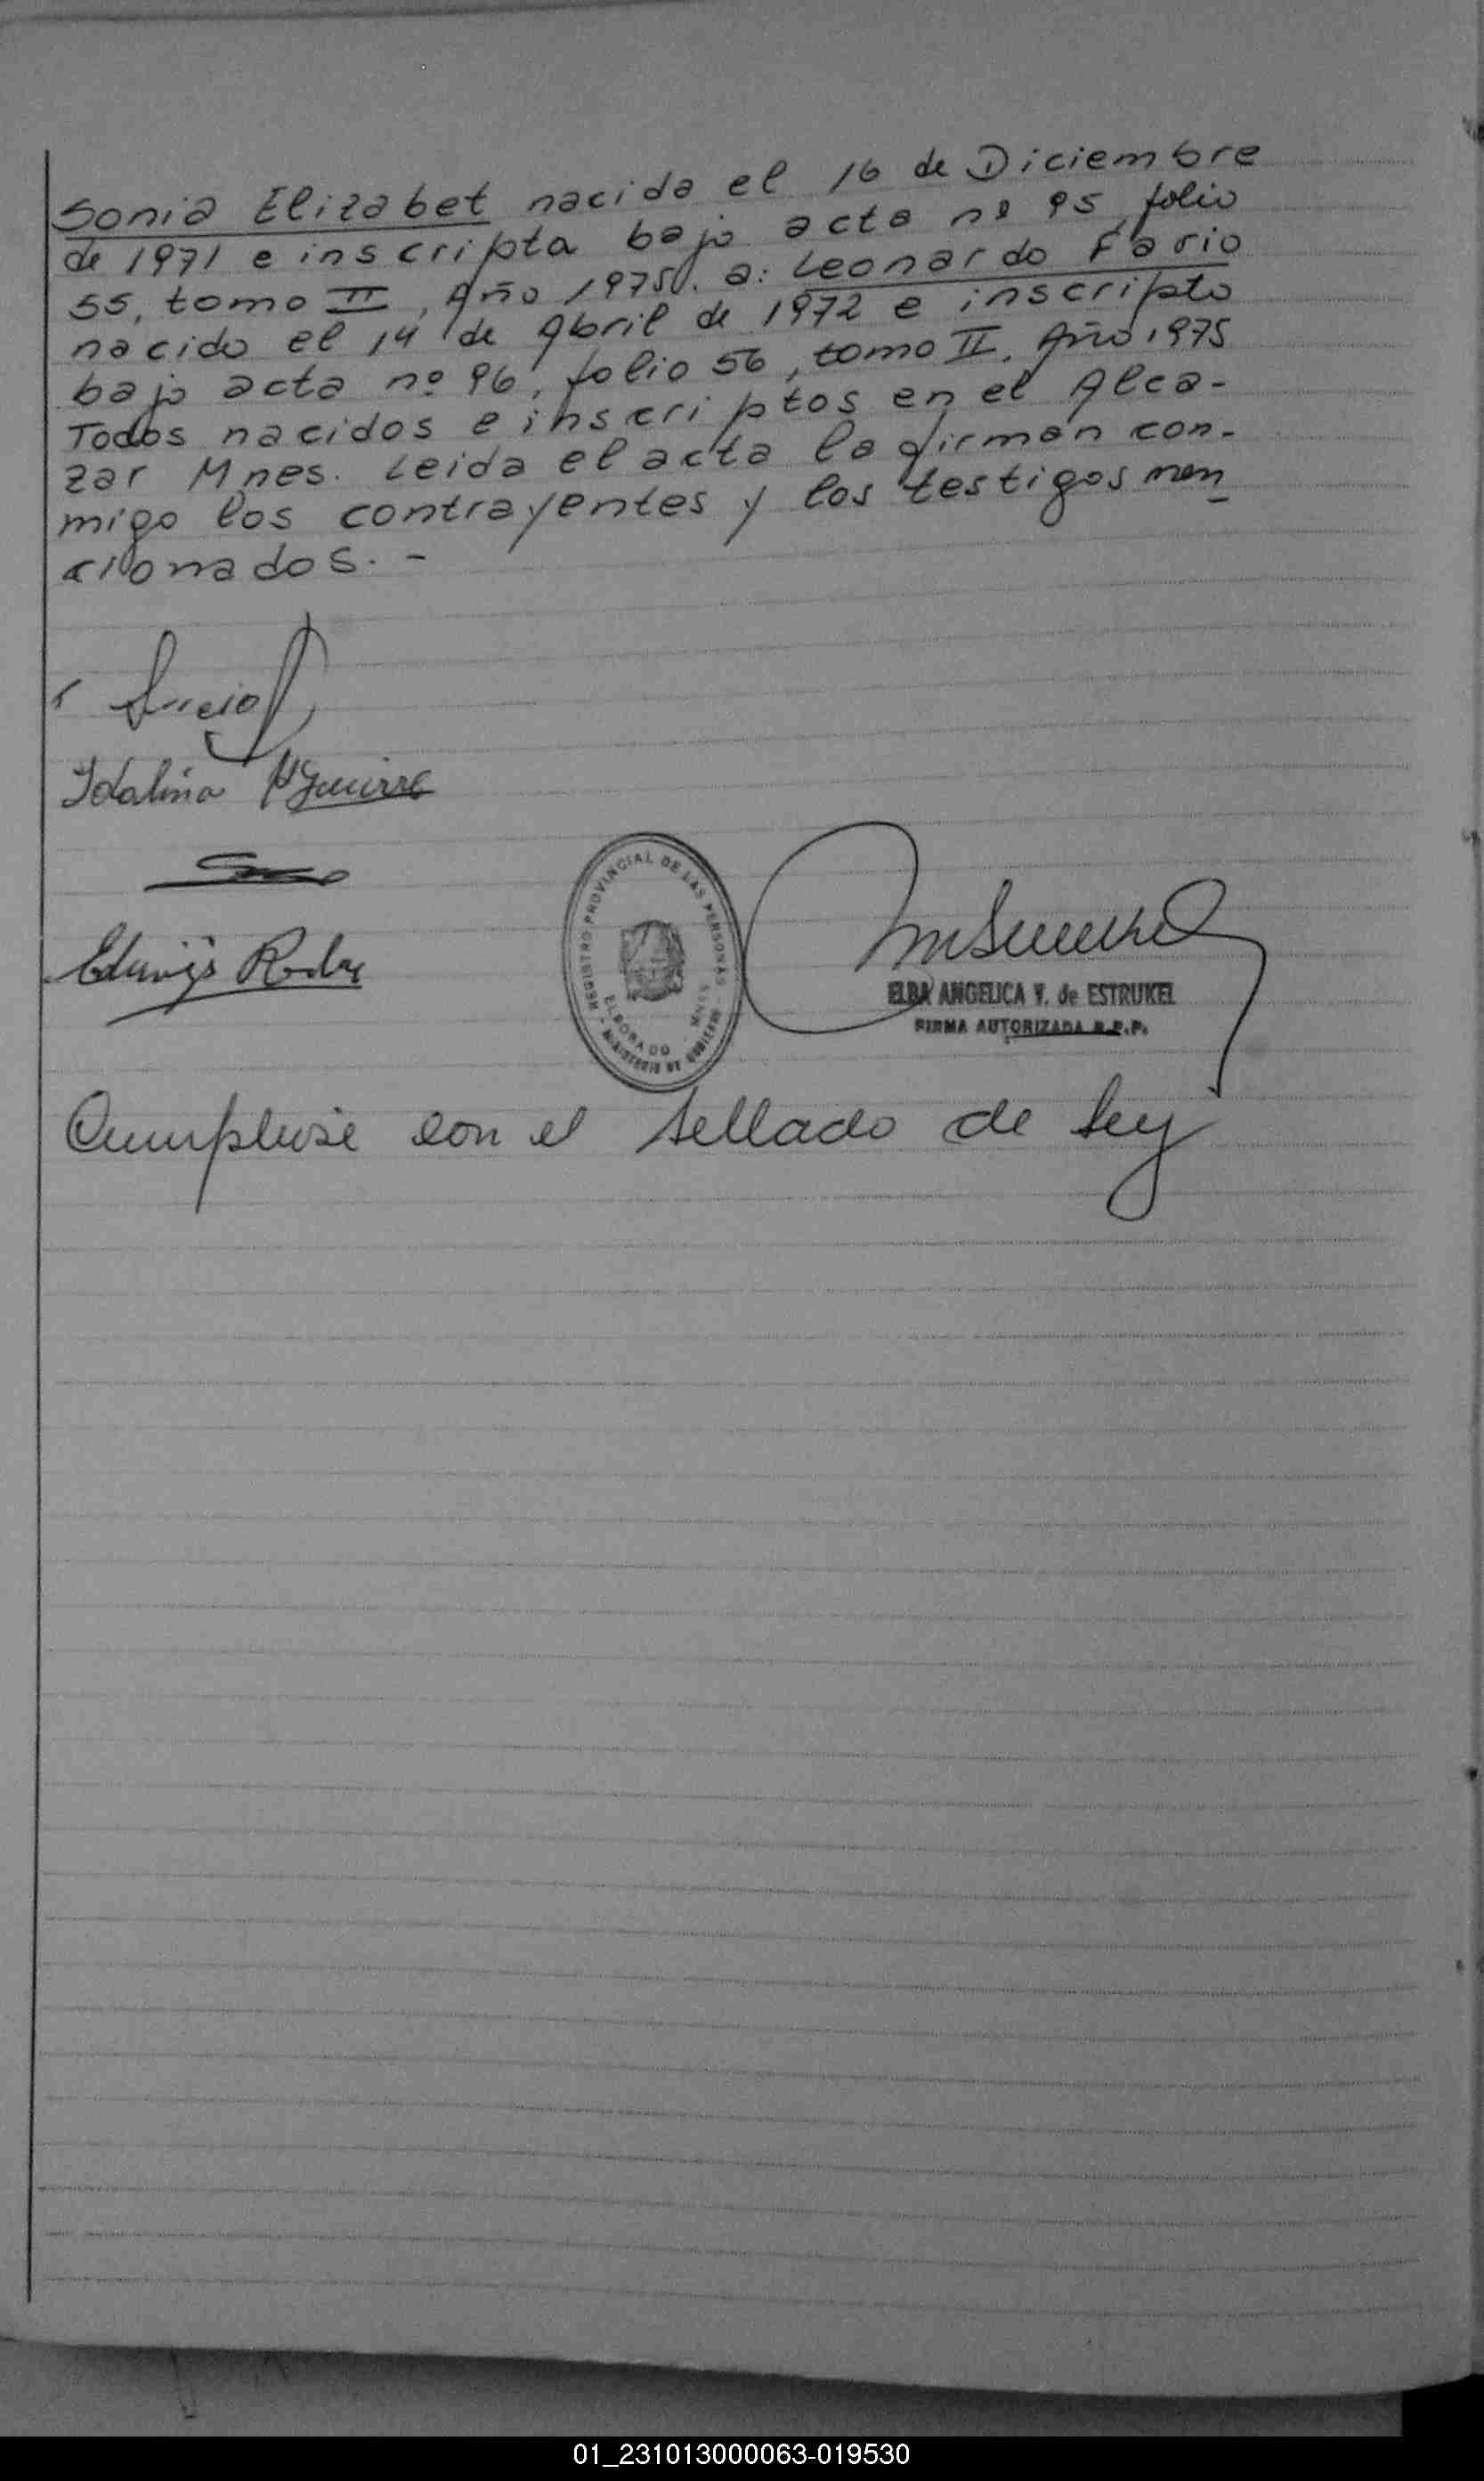 Sonia Elizabet nacida el 16 de Diciembre
de 1971 e inscripta bajo acta nº 95, folio
55, tomo II, Año 1975. a: Leonardo Favio
nacido el 14 de Abril de 1972 e inscripto
bajo acta nº 96, folio 56, tomo II. Año 1975
Todos nacidos e inscriptos en el Alca-
zar Mnes. Leida el acta la firman con-
migo los contrayentes y los testigos men
cionados. -
Idalina Aguirre
REGISTRO PROVINCIAL DE LAS PERSONAS - MINISTERIO DE GOBIERNO -
ELDORADO - MNES
ELBA ANGELICA V. de ESTRUKEL
FIRMA AUTORIZADA R.P.P.
Cumplose con el sellado de ley
01_231013000063-019530